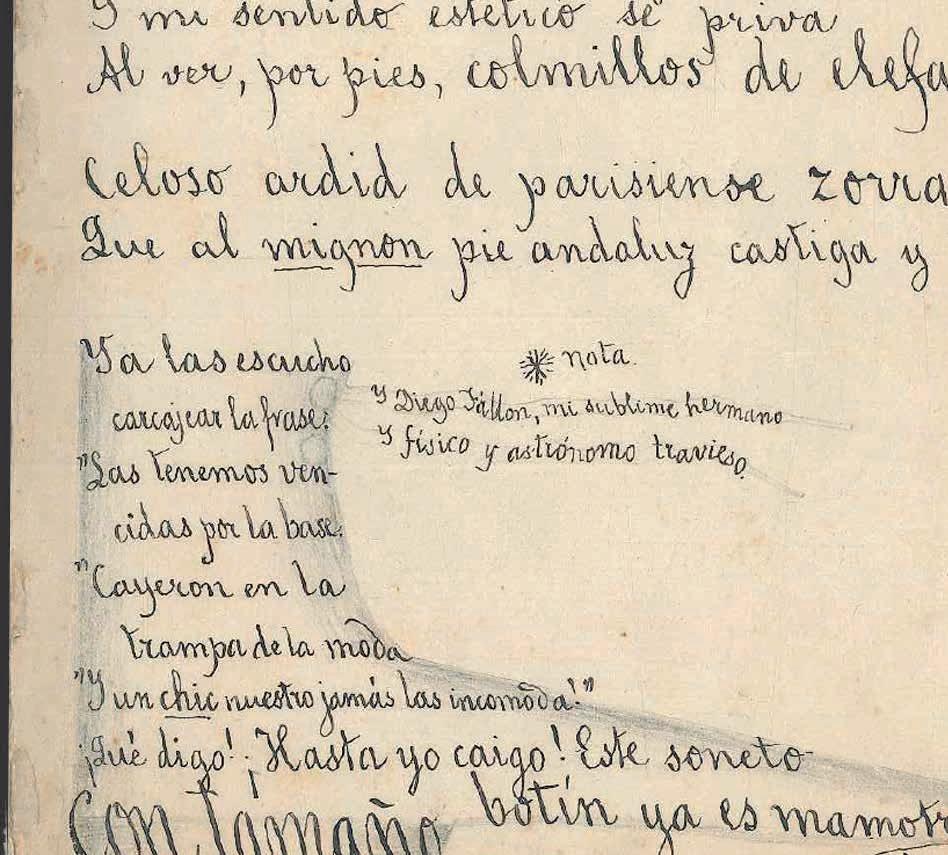 Y mi sentido estético se priva
Al ver, por pies, colmillos de elefa
Celoso ardid de parisiense zorra
Que al mignon pie andaluz castiga y
Ya las escucho
carcajear la frase:
"Las tenemos ven-
cidas por la base.
"Cayeron en la
trampa de la moda
"Y un chic nuestro jamás las incomoda!"
¡Qué digo! ¡Hasta yo caigo! Este soneto
Con tamaño botín ya es mamotr
nota.
Y Diego Fállon, mi sublime hermano
Y físico y astrónomo travieso.